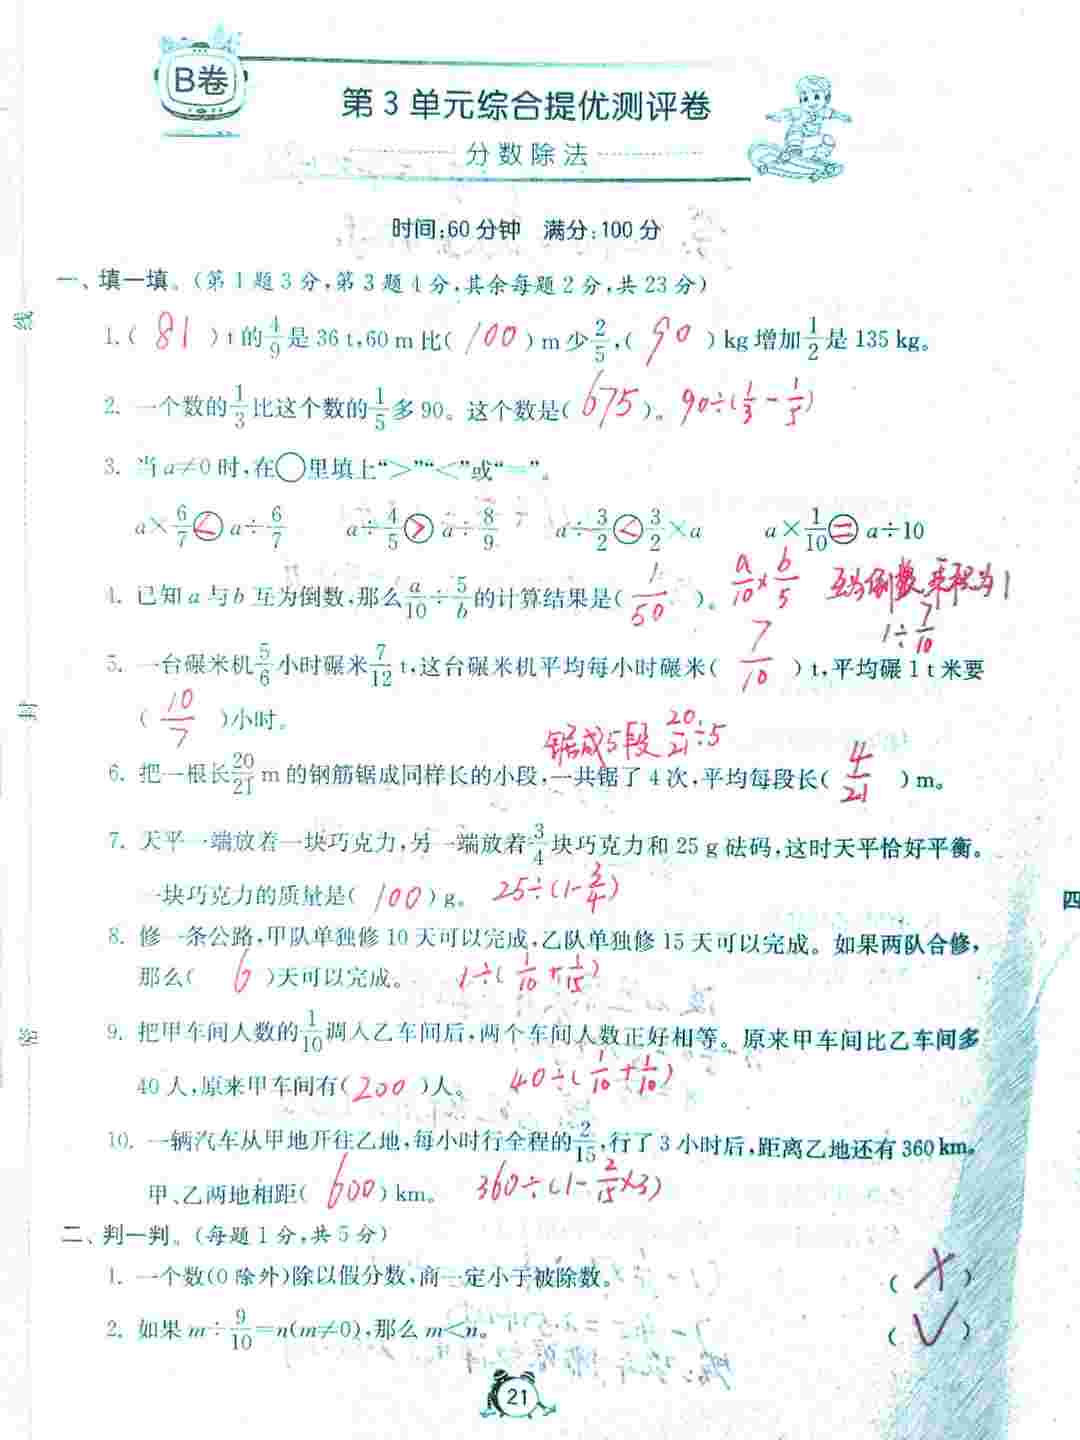 B卷
第3单元综合提优测评卷
分数除法
时间:60分钟 满分:100分
一、填一填。(第1题3分,第3题4分,其余每题2分,共23分)
1.( 81 )t的4/9是36 t,60 m比( 100 )m少2/5,( 90 )kg增加1/2是135 kg。
2. 一个数的1/3比这个数的1/5多90。这个数是( 675 )。 90÷(1/3-1/5)
3. 当a≠0时,在○里填上“>”“<”或“=”。
a×6/7 < a÷6/7 a÷4/5 > a÷8/9 a÷3/2 < 3/2×a a×1/10 = a÷10
a/10×b/5 互为倒数,乘积为1
4. 已知a与b互为倒数,那么a/10÷5/b的计算结果是( 1/50 )。
1÷7/10
5. 一台碾米机5/6小时碾米7/12 t,这台碾米机平均每小时碾米( 7/10 )t,平均碾1 t米要
( 10/7 )小时。
锯成5段 20/21÷5
6. 把一根长20/21 m的钢筋锯成同样长的小段,一共锯了4次,平均每段长( 4/21 )m。
7. 天平一端放着一块巧克力,另一端放着3/4块巧克力和25 g砝码,这时天平恰好平衡。
一块巧克力的质量是( 100 )g。 25÷(1-3/4)
8. 修一条公路,甲队单独修10天可以完成,乙队单独修15天可以完成。如果两队合修,
那么( 6 )天可以完成。 1÷(1/10+1/15)
9. 把甲车间人数的1/10调入乙车间后,两个车间人数正好相等。原来甲车间比乙车间多
40人,原来甲车间有( 200 )人。 40÷(1/10+1/10)
10. 一辆汽车从甲地开往乙地,每小时行全程的2/15,行了3小时后,距离乙地还有360 km。
甲、乙两地相距( 600 )km。 360÷(1-2/15×3)
二、判一判。(每题1分,共5分)
1. 一个数(0除外)除以假分数,商一定小于被除数。 ( × )
2. 如果m÷9/10=n(m≠0),那么m<n。 ( √ )
21
线
封
密
四